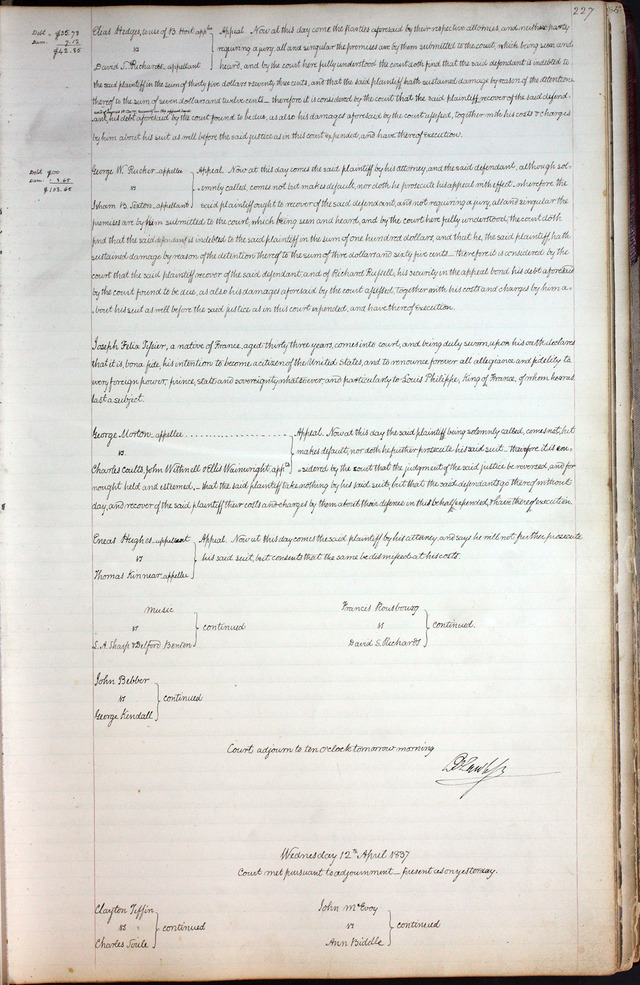 227
Debt - $35.73
Dam. 7.12
$42.85
Elias Hedges, to use of B. Hoit appee
vs
David S. Richards, appellant
Appeal. Now at this day come the parties aforesaid by their respective attornies, and neither party
requiring a jury, all and singular the premises are by them submitted to the court, which being seen and
heard, and by the court here fully understood the court doth find that the said defendant is indebted to
the said plaintiff in the sum of thirty five dollars & seventy three cents, and that the said plaintiff hath sustained damage by reason of the detention
thereof to the sum of seven dollars and twelve cents - therefore it is considered by the court that the said plaintiff recover of the said defend-
ant, his debt aforesaid by the court found to be due, as also his damages aforesaid by the court assessed, together with his costs & charges
by him about his suit as well before the said justice as in this court expended, and have thereof execution.
Debt $100
Dam. 3.65
$103.65
George W. Rucker - appellee
vs
Isham B. Sexton, appellant
Appeal. Now at this day comes the said plaintiff by his attorney, and the said defendant, although sol-
emnly called, comes not but makes default, nor doth he prosecute his appeal with effect - wherefore the
said plaintiff ought to recover of the said defendant, and not requiring a jury, all and singular the
premises are by him submitted to the court, which being seen and heard, and by the court here fully understood, the court doth
find that the said defendant is indebted to the said plaintiff in the sum of one hundred dollars, and that he, the said plaintiff, hath
sustained damage by reason of the detention thereof to the sum of three dollars and sixty five cents - therefore it is considered by the
court that the said plaintiff recover of the said defendant, and of Richard Russell, his security in the appeal bond his debt aforesaid
by the court found to be due, as also his damages aforesaid by the court assessed, together with his costs and charges by him a-
bout his suit as well before the said justice as in this court expended, and have thereof execution.
Joseph Felix Tissier, a native of France, aged thirty three years, comes into court, and being duly sworn, upon his oath declares
that it is, bona fide, his intention to become a citizen of the United States, and to renounce forever all allegiance and fidelity to
every foreign power, prince, state and sovereignty whatsoever, and particularly to Louis Philippe, King of France, of whom he was
last a subject.
George Morton - appellee
vs.
Charles Coults, John Withnell & Ellis Wainwright, appts
Appeal. Now at this day the said plaintiff being solemnly called, comes not, but
makes default, nor doth he further prosecute his said suit - therefore it is con-
sidered by the court that the judgment of the said justice be reversed, and for
nought held and esteemed, - that the said plaintiff take nothing by his said suit, but that the said defendants go thereof without
day, and recover of the said plaintiff their costs and charges by them about their defence in this behalf expended, & have thereof execution
Eneas Hughes - appellant
vs
Thomas Kinnear, appellee
Appeal. Now at this day comes the said plaintiff by his attorney, and says he will not further prosecute
his said suit, but consents that the same be dismissed at his costs.
Music
vs
S. A. Sharp & Delford Benton
continued
Frances Rousbourg
vs
David S. Richards
continued.
John Bebber
vs
George Kendall
continued
Court adjourn to ten o'clock tomorrow morning
Wednesday 12th April 1837
Court met pursuant to adjournment - present as on yesterday.
Clayton Tiffin
vs
Charles Soule
continued
John McEvoy
vs
Ann Biddle
continued